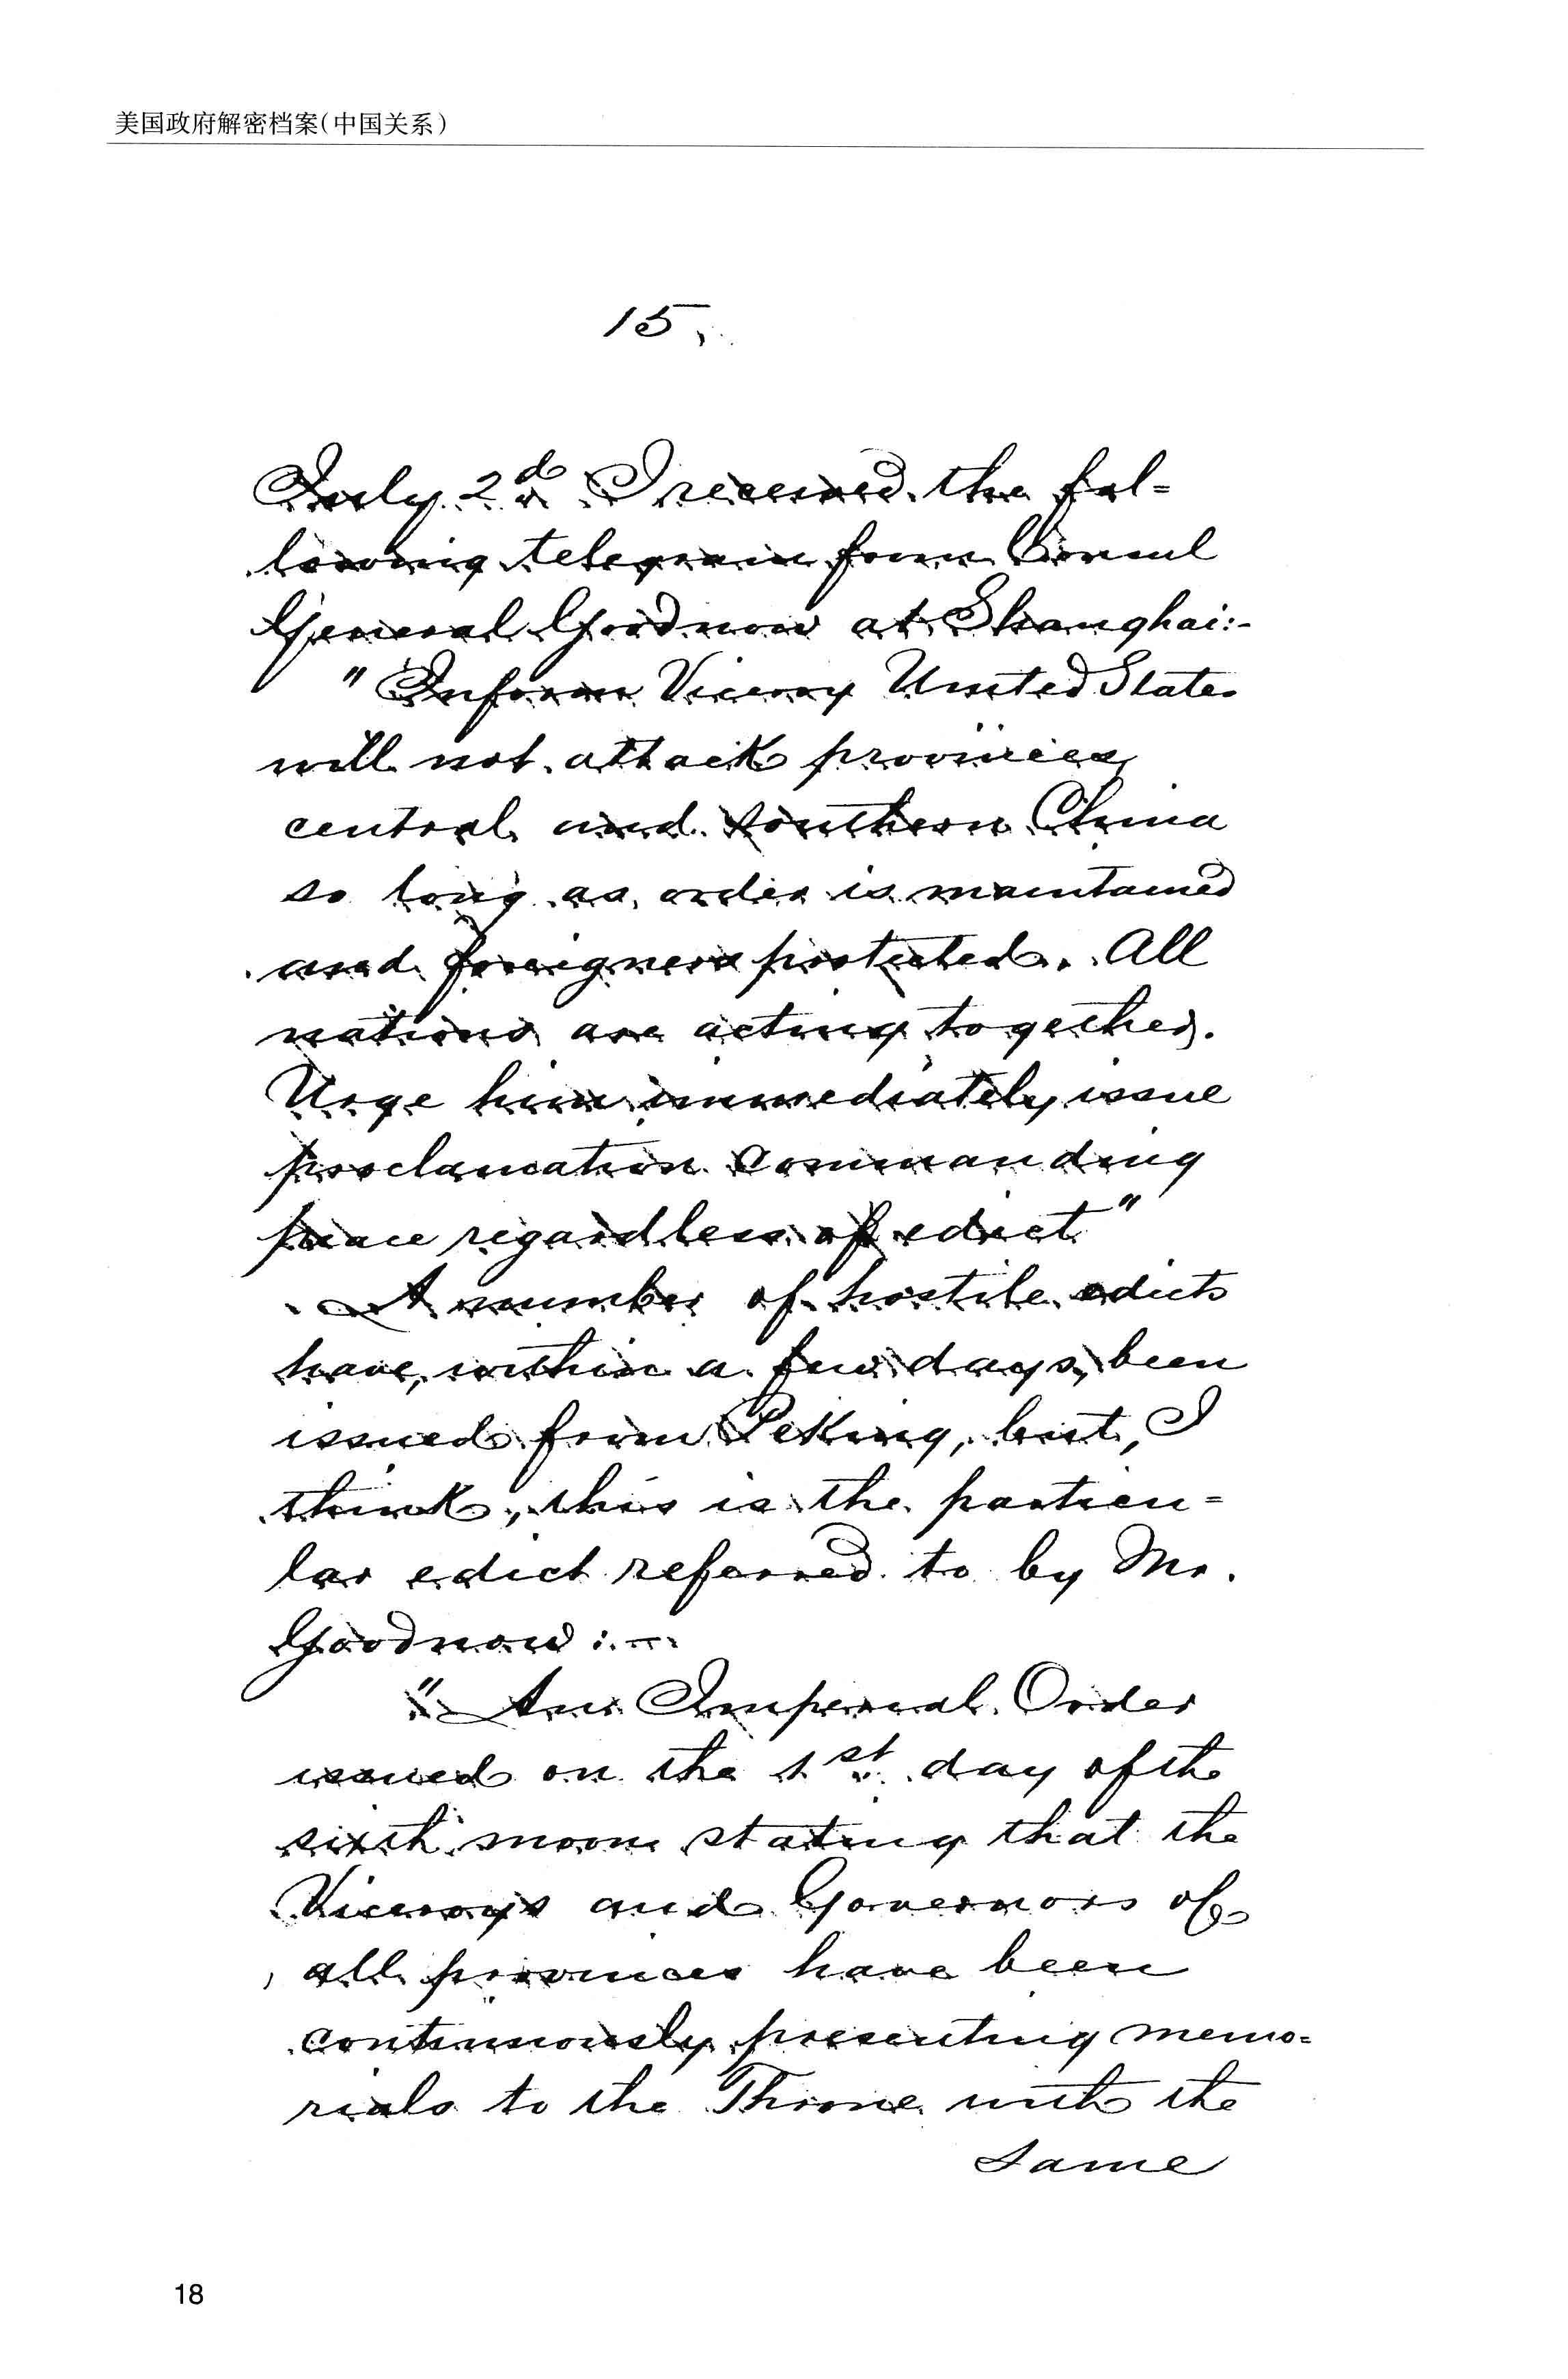 美国政府解密档案(中国关系)
15,
July 2d I received the fol=
lowing telegram from Consul
General Goodnow at Shanghai:-
"Inform Viceroy United States
will not attack provinces
central and southern China
so long as order is maintained
and foreigners protected. All
nations are acting together.
Urge him immediately issue
proclamation commanding
peace regardless of edict"
A number of hostile edicts
have, within a few days, been
issued from Peking, but, I
think, this is the particu=
lar edict referred to by Mr.
Goodnow:-
"An Imperial Order
issued on the 1st day of the
sixth moon stating that the
Viceroys and Governors of
all provinces have been
continuously presenting memo=
rials to the Throne with the
same
18